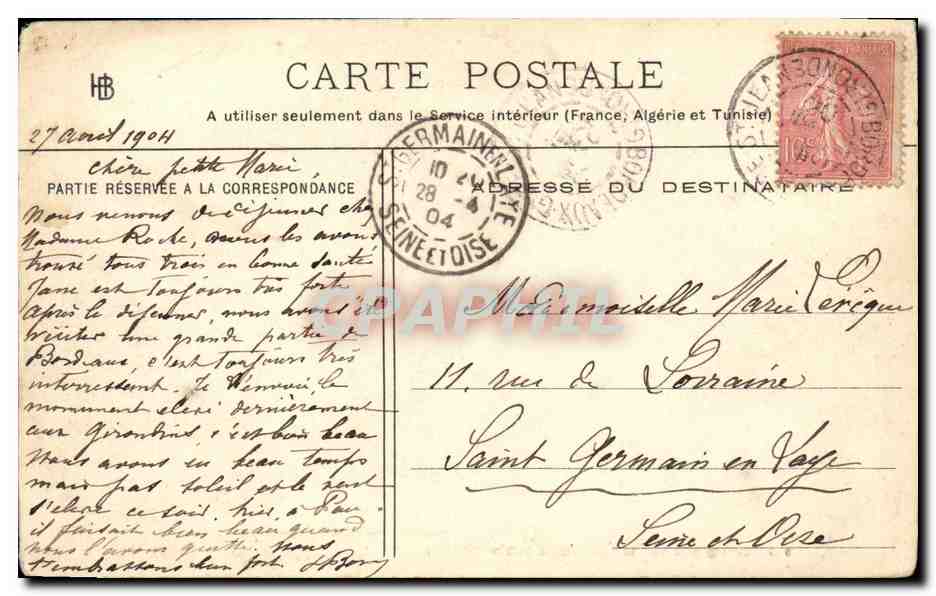 HB
CARTE POSTALE
A utiliser seulement dans le Service intérieur (France, Algérie et Tunisie)
27 avril 1904
chère petite Marie
PARTIE RÉSERVÉE A LA CORRESPONDANCE
ADRESSE DU DESTINATAIRE
Nous venons de déjeuner chez
Madame Roche, nous les avons
trouvé tous trois en bonne santé
Jane est toujours très forte
après le déjeuner, nous avons été
visiter une grande partie de
Bordeaux, c'est toujours très
interressant. Je t'envoie le
monument élevé dernièrement
aux Girondins, c'est bien beau
Nous avons eu beau temps
mais pas soleil et le vent
s'élève ce soir. hier à Pau
il faisait bien beau quand
nous l'avons quitté. Nous
t'embrassons bien fort
Mademoiselle Marie Lévêque
11. rue de Lorraine
Saint Germain en Laye
Seine et Oise
St GERMAIN EN LAYE
10
28 -4
04
SEINE ET OISE
10
CPAPHIL